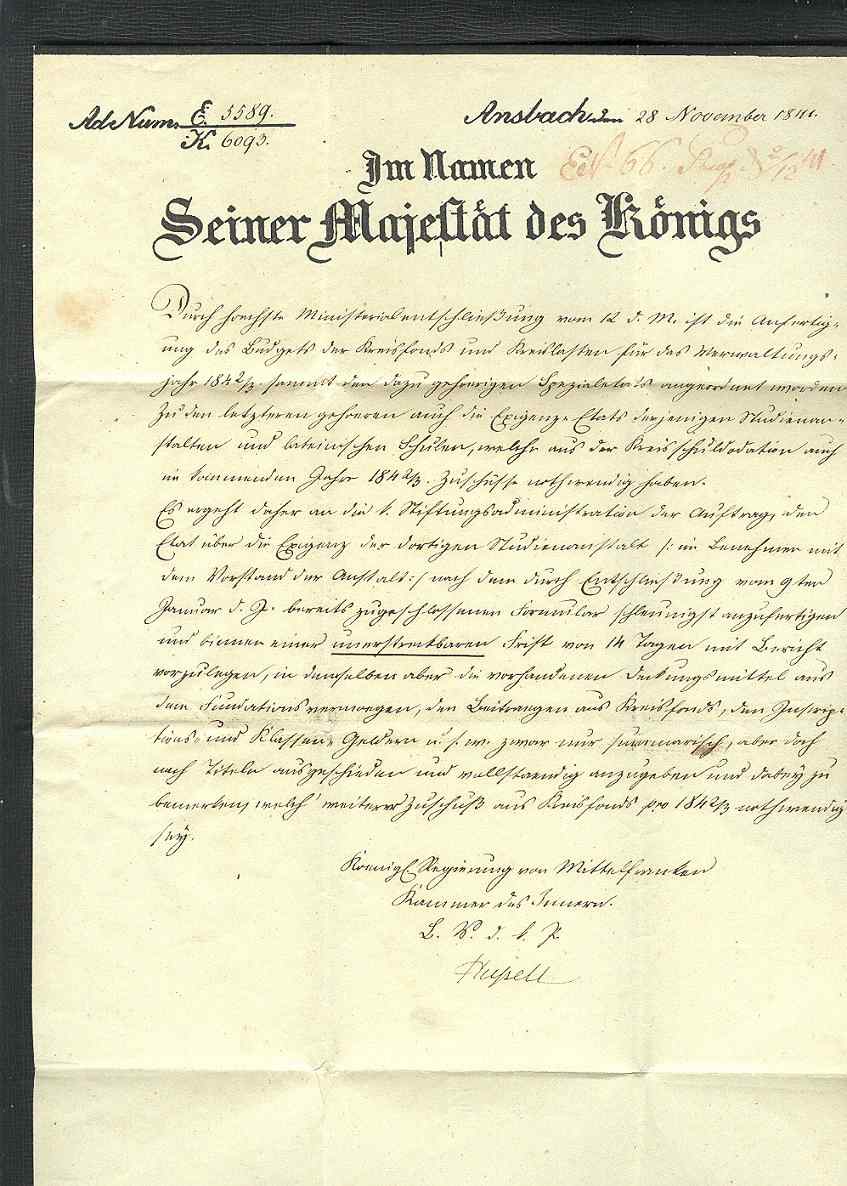 Ad Num. E. 5589.
K. 6093.
Ansbach den 28 November 1841.
Im Namen
Seiner Majestät des Königs
Durch hoechste Ministerialentschließung vom 12 d. M. ist die Anfertig-
ung des Budgets der Kreisfonds und Kreislasten für das Verwaltungs-
jahr 1842/3 sammt den dazu gehoerigen Spezialetats angeordnet worden
Zu den letzteren gehoeren auch die Exigenz-Etats derjenigen Studienan-
stalten und lateinischen Schulen, welche aus der Kreisschuldodation auch
im kommenden Jahr 1842/3. Zuschüsse nothwendig haben.
Es ergeht daher an die k. Stiftungsadministration der Auftrag, den
Etat über die Exigenz der dortigen Studienanstalt /: im Benehmen mit
dem Vorstand der Anstalt :/ nach dem durch Entschließung vom 9ten
Januar d. J. bereits zugeschlossenen Formular schleunigst anzufertigen
und binnen einer unerstreckbaren Frist von 14 Tagen mit Bericht
vorzulegen, in demselben aber die vorhandenen Deckungsmittel aus
dem Fundationsvermoegen, den Beitraegen aus Kreisfonds, den Inscrip-
tions- und Klassen-Geldern u. s. w. zwar nur summarisch, aber doch
nach Titeln ausgeschieden und vollstaendig anzugeben und dabey zu
bemerken, welch' weiterer Zuschuß aus Kreisfonds pro 1842/3 nothwendig
sey.
Koenigl. Regierung von Mittelfranken
Kammer des Innern.